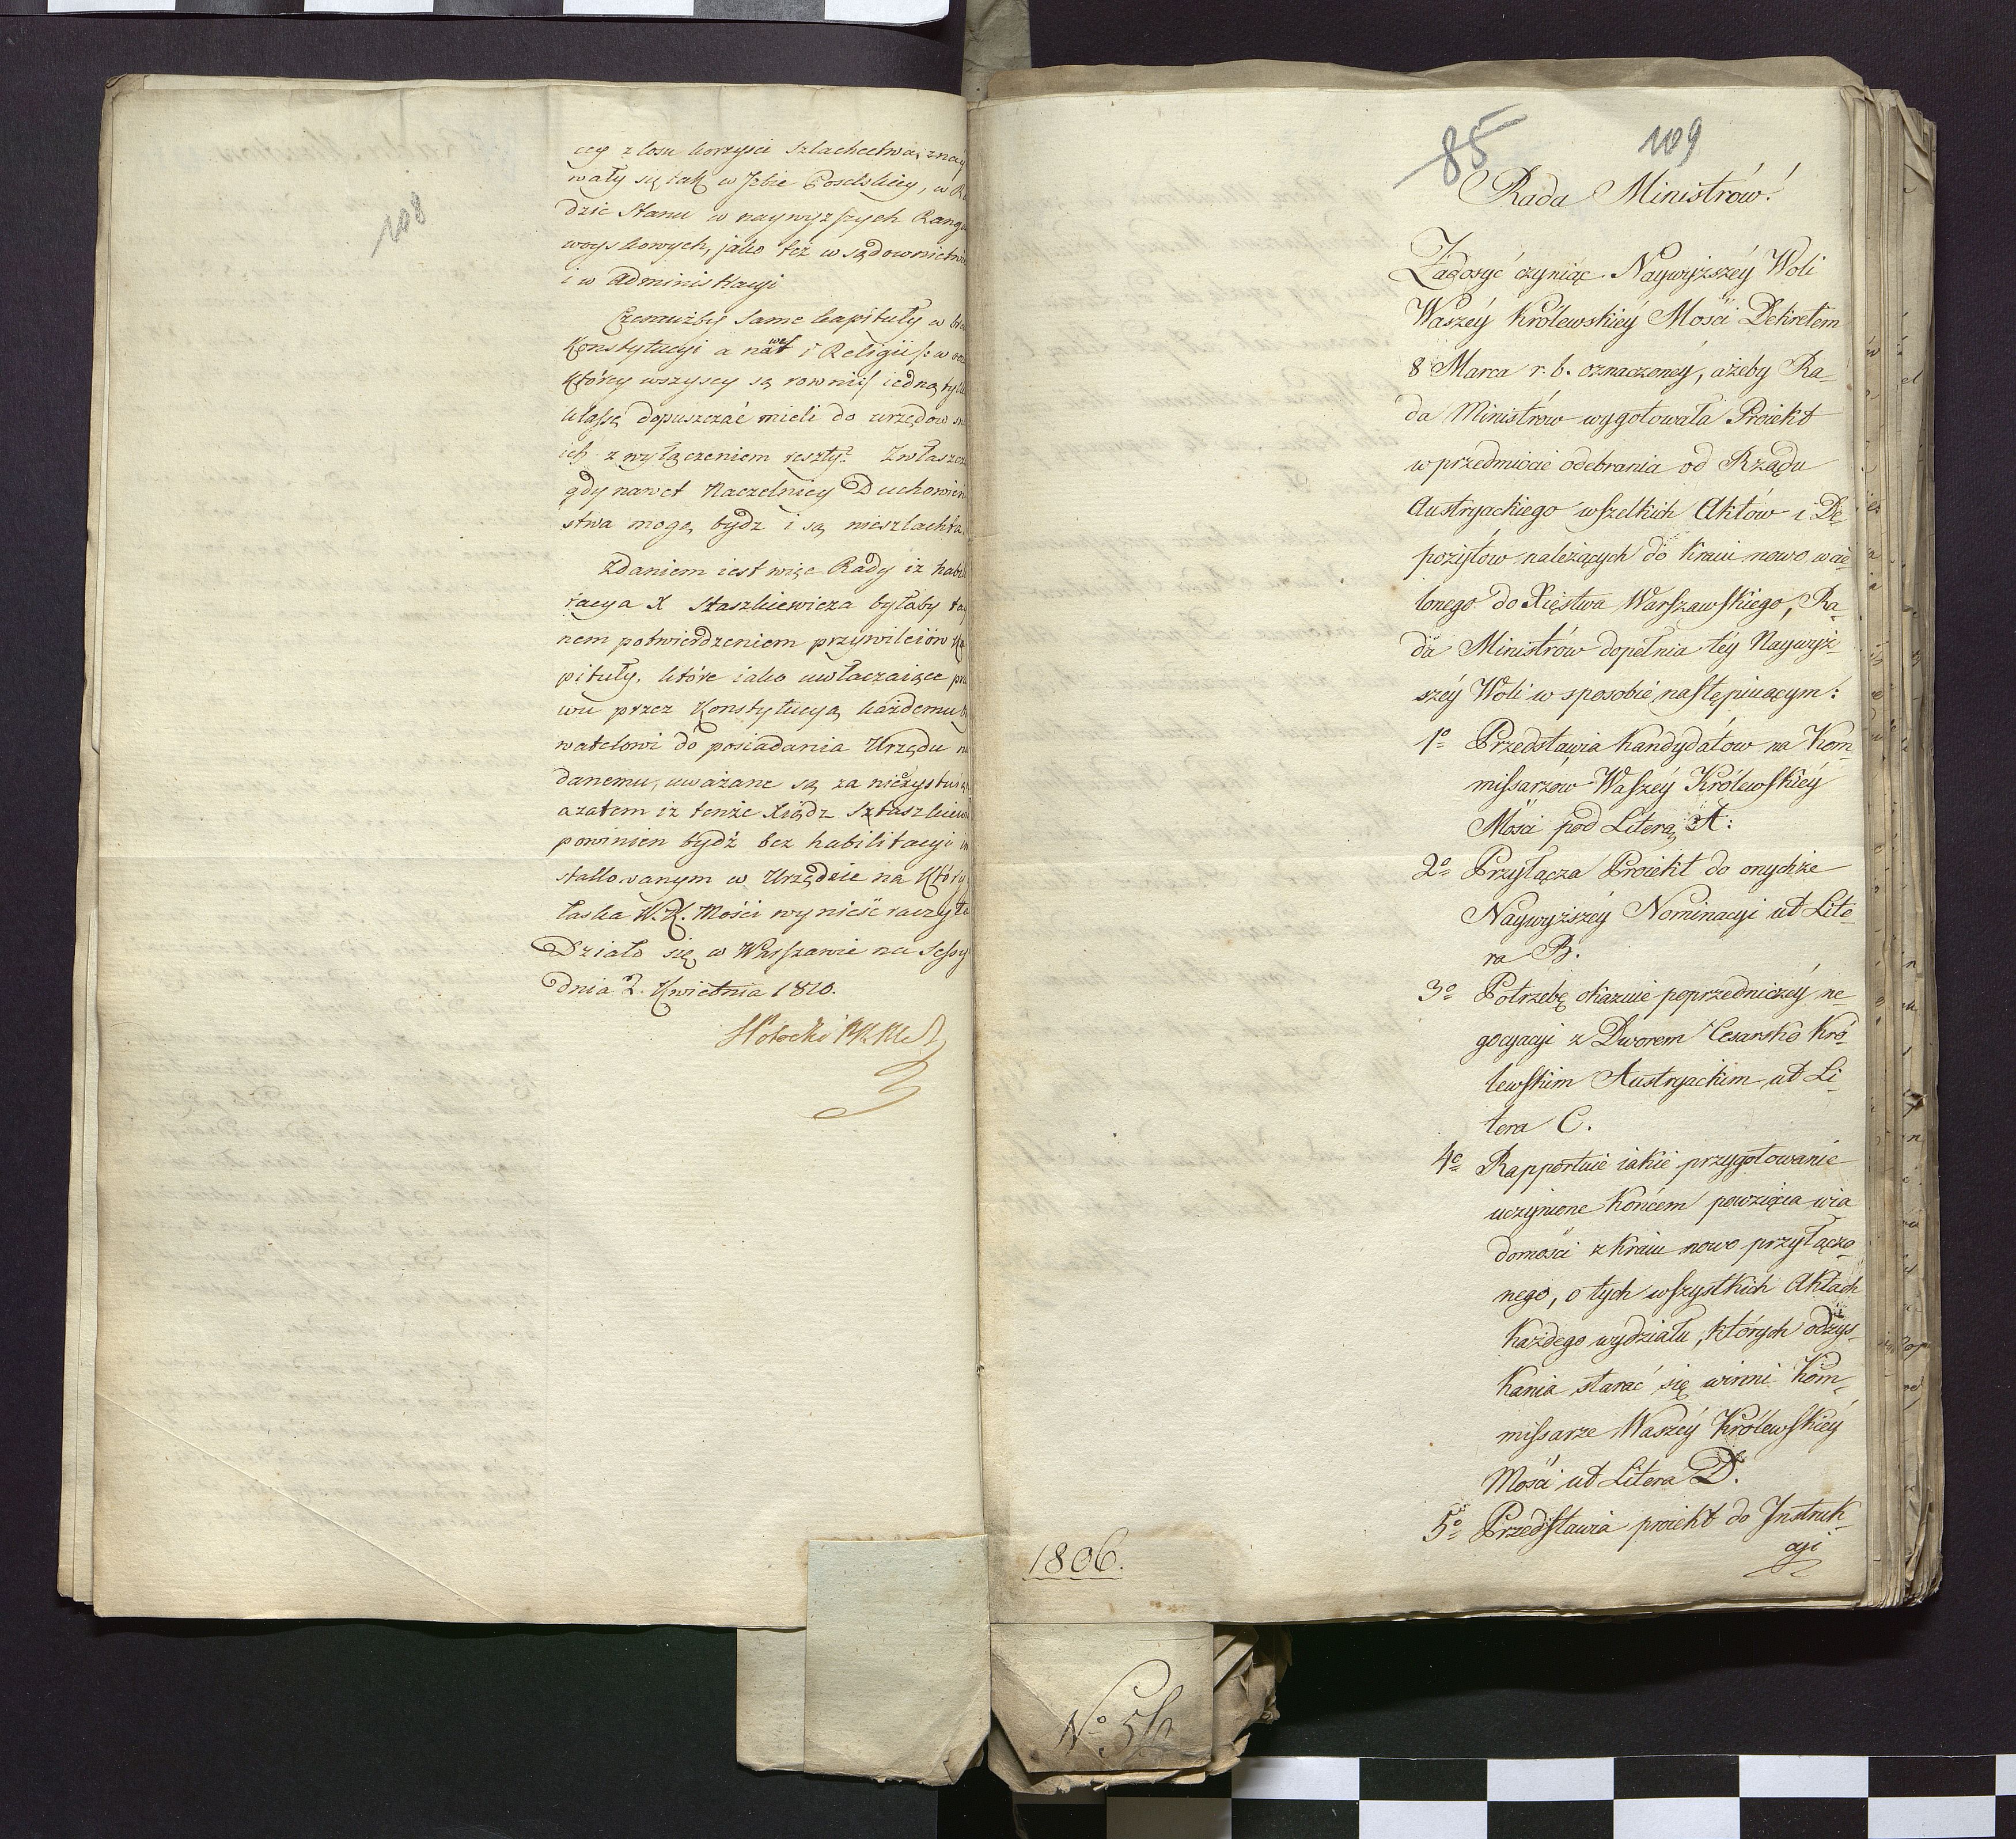 108
cey z losu korzyści szlachectwa, znay
wały się tak w Izbie Poselskiey, w Ra
dzie Stanu w naywyższych Ranga
woyskowych, jako też w sądownictwie
i w Administracyi
Czemużby same kapituły w
Konstytucyi a nawet i Religii /: w
którey wszyscy są rowni :/ iedną tylko
klassę dopuszczać mieli do urzędow
ich z wyłączeniem reszty? Zwłaszcza
gdy nawet Naczelnicy Duchowień
stwa mogą bydz i są nieszlachta
Zdaniem iest więc Rady iż habili
tacya X Staszkiewicza byłaby
nem potwierdzeniem przywileiów Ka
pituły, które iako uwłaczaiące pra
wu przez Konstytucyą każdemu
watelowi do posiadania Urzędu na
danemu, uważane są za
azatem iż tenże Xiądz Staszkiewi
powinien bydź bez habilitacyi in
stallowanym w Urzędzie na który
łaska W. K. Mości wynieść raczyła
Działo się w Warszawie na Sessyi
dnia 2. Kwietnia 1810.
85 109
Rada Ministrów!
Zadosyć czyniąc Naywyższéy Woli
Waszéy Królewskiéy Mości Dekretem
8 Marca r. b. oznaczonéy, ażeby Ra-
da Ministrów wygotowała Proiekt
w przedmiocie odebrania od Rządu
Austryackiego wszelkich Aktów i De-
pozytow należących do Kraiu nowo wcie-
lonego do Xięstwa Warszawskiego, Ra-
da Ministrów dopełnia téy Naywyż-
széy Woli w sposobie następuiącym:
1o Przedstawia Kandydatow na Kom-
missarzow Waszéy Królewskiéy
Mości pod Literą A:
2o Przyłącza Proiekt do onychże
Naywyższéy Nominacyi ut Lite-
ra B.
3o Potrzebę okazuie poprzedniczéy ne-
gocyacyi z Dworem Cesarsko Kró-
lewskim Austryackim ut Li-
tera C.
4o Rapportuie iakie przygotowanie
uczynione końcem powzięcia wia
domości z Kraiu nowo przyłączo-
nego, o tych wszystkich Aktach
każdego wydziału, których odzys-
kania starać się winni Kom-
missarze Waszéy Królewskiéy
Mości ut Litera D.
5o Przedstawia proiekt do Instruk-
cyi
1806.